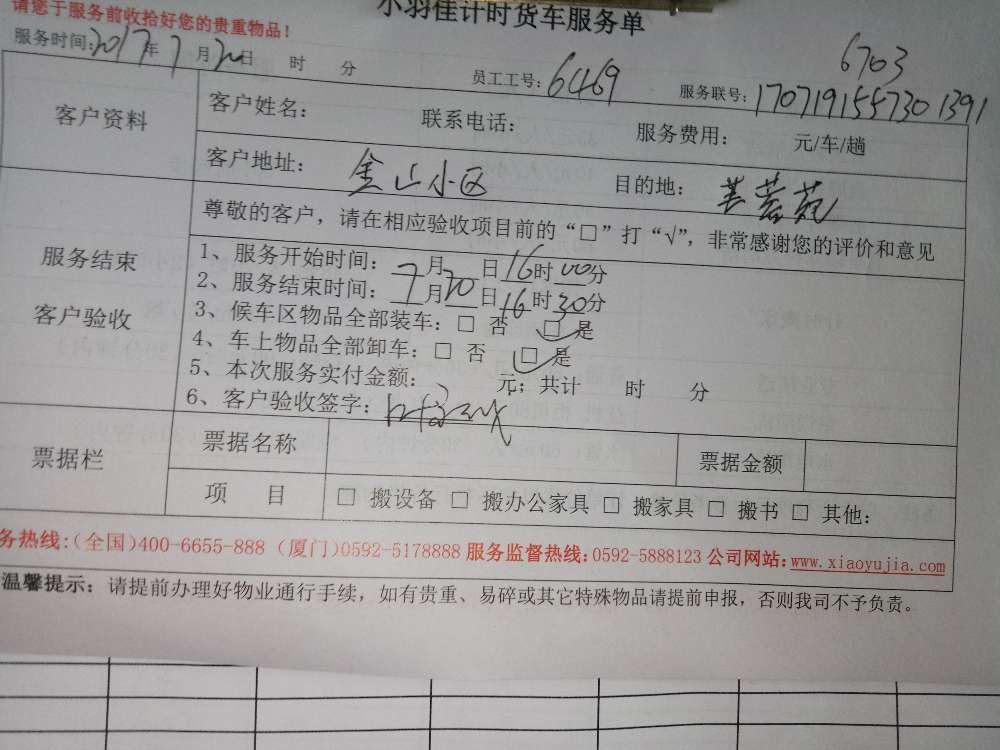 小羽佳计时货车服务单
请您于服务前收拾好您的贵重物品！
6703
服务时间：2017年7月20日 时 分 员工工号：6469 服务联号：1707191557301391
客户资料
客户姓名： 联系电话： 服务费用： 元/车/趟
客户地址：金山小区 目的地：芙蓉苑
服务结束
客户验收
尊敬的客户，请在相应验收项目前的“□”打“√”，非常感谢您的评价和意见
1、服务开始时间： 月 日16时00分
2、服务结束时间：7月20日16时30分
3、候车区物品全部装车：□ 否 ☑ 是
4、车上物品全部卸车：□ 否 ☑ 是
5、本次服务实付金额： 元；共计 时 分
6、客户验收签字：
票据栏
票据名称 票据金额
项 目 □ 搬设备 □ 搬办公家具 □ 搬家具 □ 搬书 □ 其他：
务热线:(全国)400-6655-888 (厦门)0592-5178888 服务监督热线:0592-5888123 公司网站:www.xiaoyujia.com
温馨提示：请提前办理好物业通行手续，如有贵重、易碎或其它特殊物品请提前申报，否则我司不予负责。